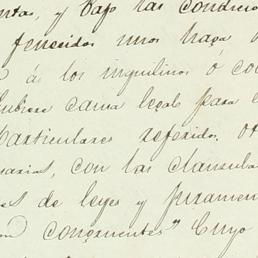 ntas, y bajo las condicio
fenecidos unos haga o
á los inquilinos ó co
ubiese causa legal para
Particulares referidos, ot
narias, con las clausula
es de leyes y juramen
on concernentes" Cuyo